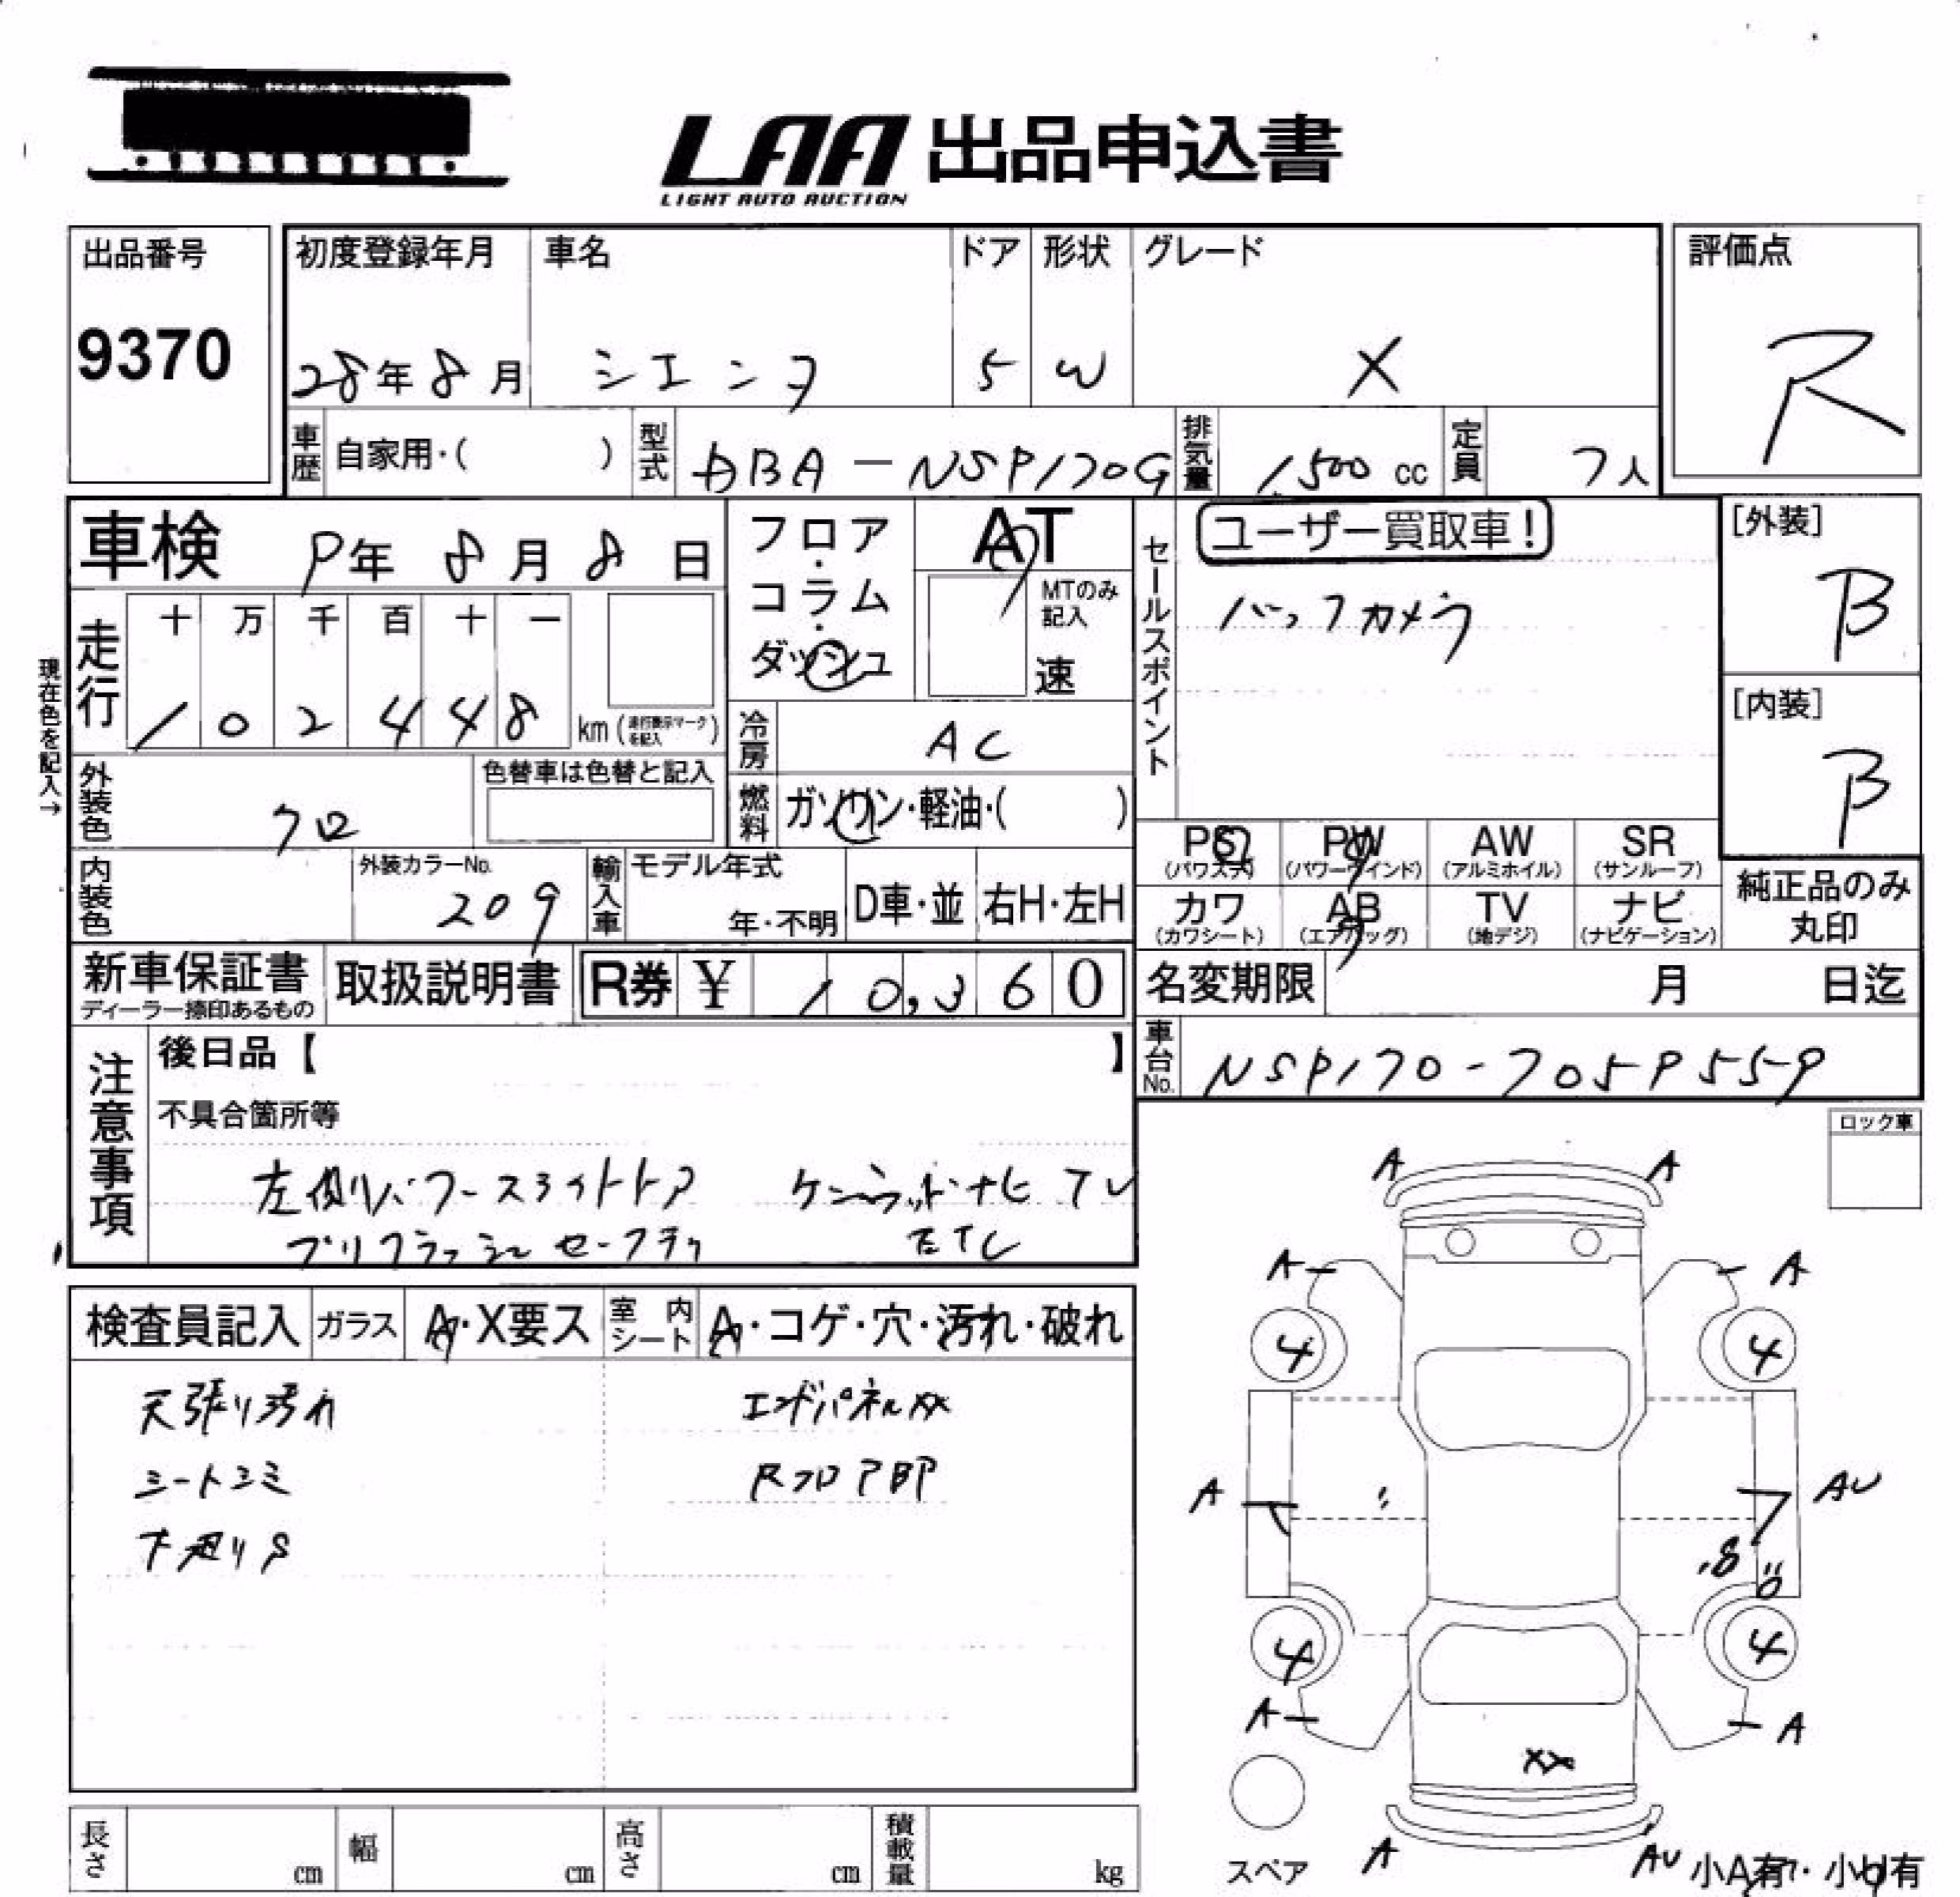 LAA 出品申込書
LIGHT AUTO AUCTION
出品番号
9370
初度登録年月
28年8月
車名
シエンタ
ドア
5
形状
W
グレード
X
評価点
R
車歴 自家用・( )
型式 DBA-NSP170G
排気量 1,500 cc
定員 7人
車検 9年 8月 8日
走行
十 万 千 百 十 一
1 0 2 4 4 8 km (走行表示マークを記入)
現在色を記入→
外装色 クロ
色替車は色替と記入
内装色
外装カラーNo.
209
フロア・コラム・ダッシュ
AT
MTのみ記入
速
冷房 AC
燃料 ガソリン・軽油・( )
輸入車 モデル年式
年・不明
D車・並
右H・左H
セールスポイント
ユーザー買取車!
バックカメラ
[外装]
B
[内装]
B
PS (パワステ)
PW (パワーウインド)
AW (アルミホイル)
SR (サンルーフ)
カワ (カワシート)
AB (エアバッグ)
TV (地デジ)
ナビ (ナビゲーション)
純正品のみ丸印
新車保証書
ディーラー捺印あるもの
取扱説明書
R券 ¥ 10,360
名変期限 月 日迄
車台No. NSP170-7059559
注意事項
後日品【 】
不具合箇所等
左側リパワースライドドア ケンウッドナビ TV
プリクラッシュセーフティ ETC
ロック車
検査員記入
ガラス A・X要ス
室内シート A・コゲ・穴・汚れ・破れ
天張り汚れ エンドパネルXX
シートシミ Rフロア部
下廻りS
A A
A A
4 4
A AU
4 4
A A
XX
A AU
スペア
小A有・小U有
長さ cm
幅 cm
高さ cm
積載量 kg